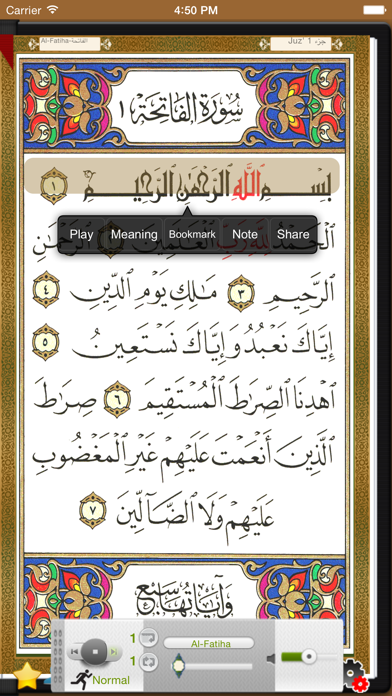 Carrier 4:50 PM
Al-Fatiha-الفاتحة Juz' 1 جزء
سُورَةُ الفَاتِحَةِ ١
بِسْمِ ٱللَّهِ ٱلرَّحْمَٰنِ ٱلرَّحِيمِ ١
Play Meaning Bookmark Note Share
ٱلْحَمْدُ لِلَّهِ رَبِّ ٱلْعَٰلَمِينَ ٱلرَّحْمَٰنِ
ٱلرَّحِيمِ ٣ مَٰلِكِ يَوْمِ ٱلدِّينِ ٤
إِيَّاكَ نَعْبُدُ وَإِيَّاكَ نَسْتَعِينُ ٥
ٱهْدِنَا ٱلصِّرَٰطَ ٱلْمُسْتَقِيمَ ٦ صِرَٰطَ
ٱلَّذِينَ أَنْعَمْتَ عَلَيْهِمْ غَيْرِ ٱلْمَغْضُوبِ
عَلَيْهِمْ وَلَا ٱلضَّآلِّينَ ٧
وَآيَاتُهَا سَبْعٌ
1 Al-Fatiha
1
Normal